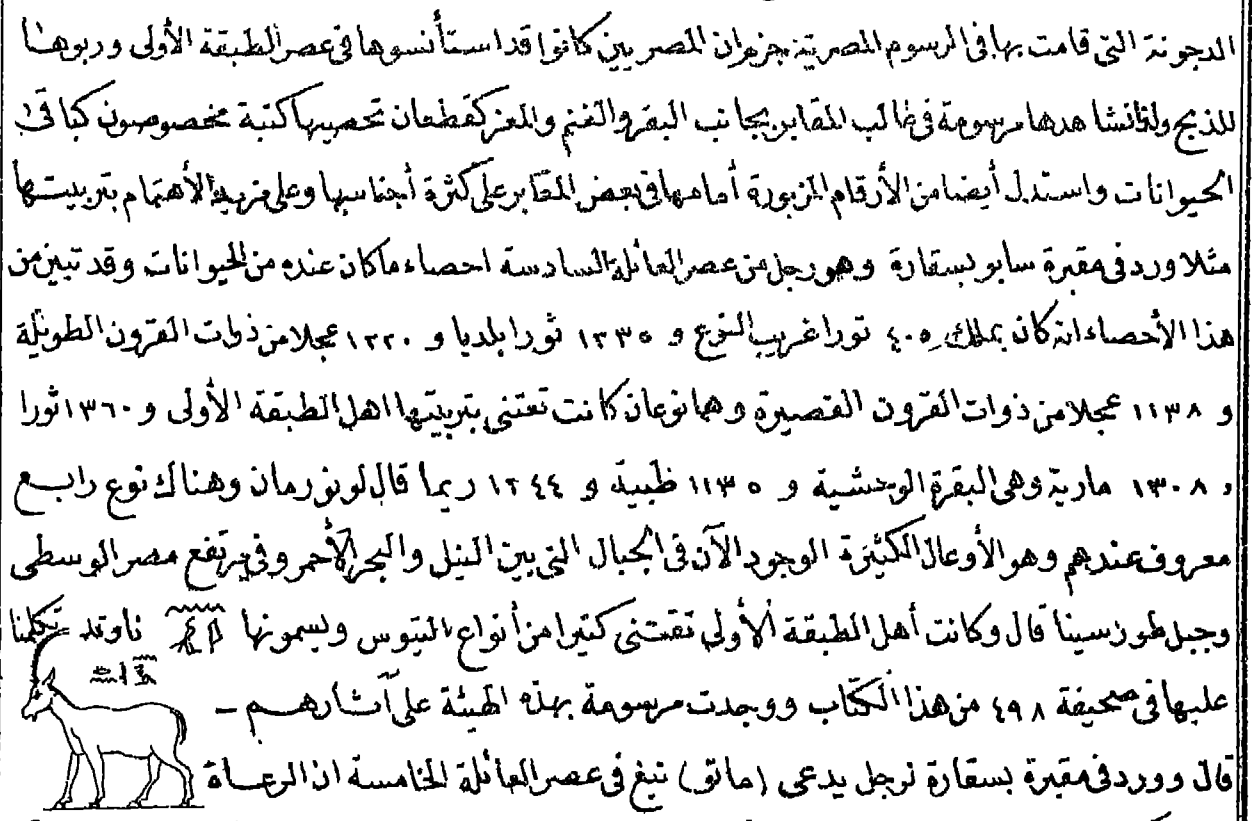 الدجونة التى قامت بها فى الرسوم المصرية جزم ان المصريين كانوا قد استأنسوها فى عصر الطبقة الأولى وربوها
للذبح ولذا نشاهدها مرسومة فى غالب المقابر بجانب البقر والغنم والمعز كقطعان تحصيها كتبة مخصوصون كباقى
الحيوانات واستدل أيضا من الأرقام المزبورة أمامها فى بعض المقابر على كثرة أجناسها وعلى مزيد الأهتمام بتربيتها
مثلا ورد فى مقبرة سابو بسقارة وهو رجل من عصر العائلة السادسة احصاء ماكان عنده من الحيوانات وقد تبين من
هذا الأحصاء انه كان يملك ٤٠٥ ثورا غريب النوع و ١٢٣٥ ثورا بلديا و ١٢٢٠ عجلا من ذوات القرون الطويلة
و ١١٣٨ عجلا من ذوات القرون القصيرة وهما نوعان كانت تعتنى بتربيتها اهل الطبقة الأولى و ١٣٦٠ ثورا
و ١٣٠٨ مارية وهى البقرة الوحشية و ١١٣٥ ظبية و ١٢٤٤ ريما قال لونورمان وهناك نوع رابع
معروف عندهم وهو الأوعال الكثيرة الوجود الآن فى الجبال التى بين النيل والبحر الأحمر وفى مرتفع مصر الوسطى
وجبل طورسينا قال وكانت أهل الطبقة الأولى تقتنى كثيرا من أنواع التيوس ويسمونها ناو وقد تكلمنا
عليها فى صحيفة ٤٩٨ من هذا الكتاب ووجدت مرسومة بهذه الهيئة على آثارهم –
قال وورد فى مقبرة بسقارة لرجل يدعى (مانق) نبغ فى عصر العائلة الخامسة ان الرعاة